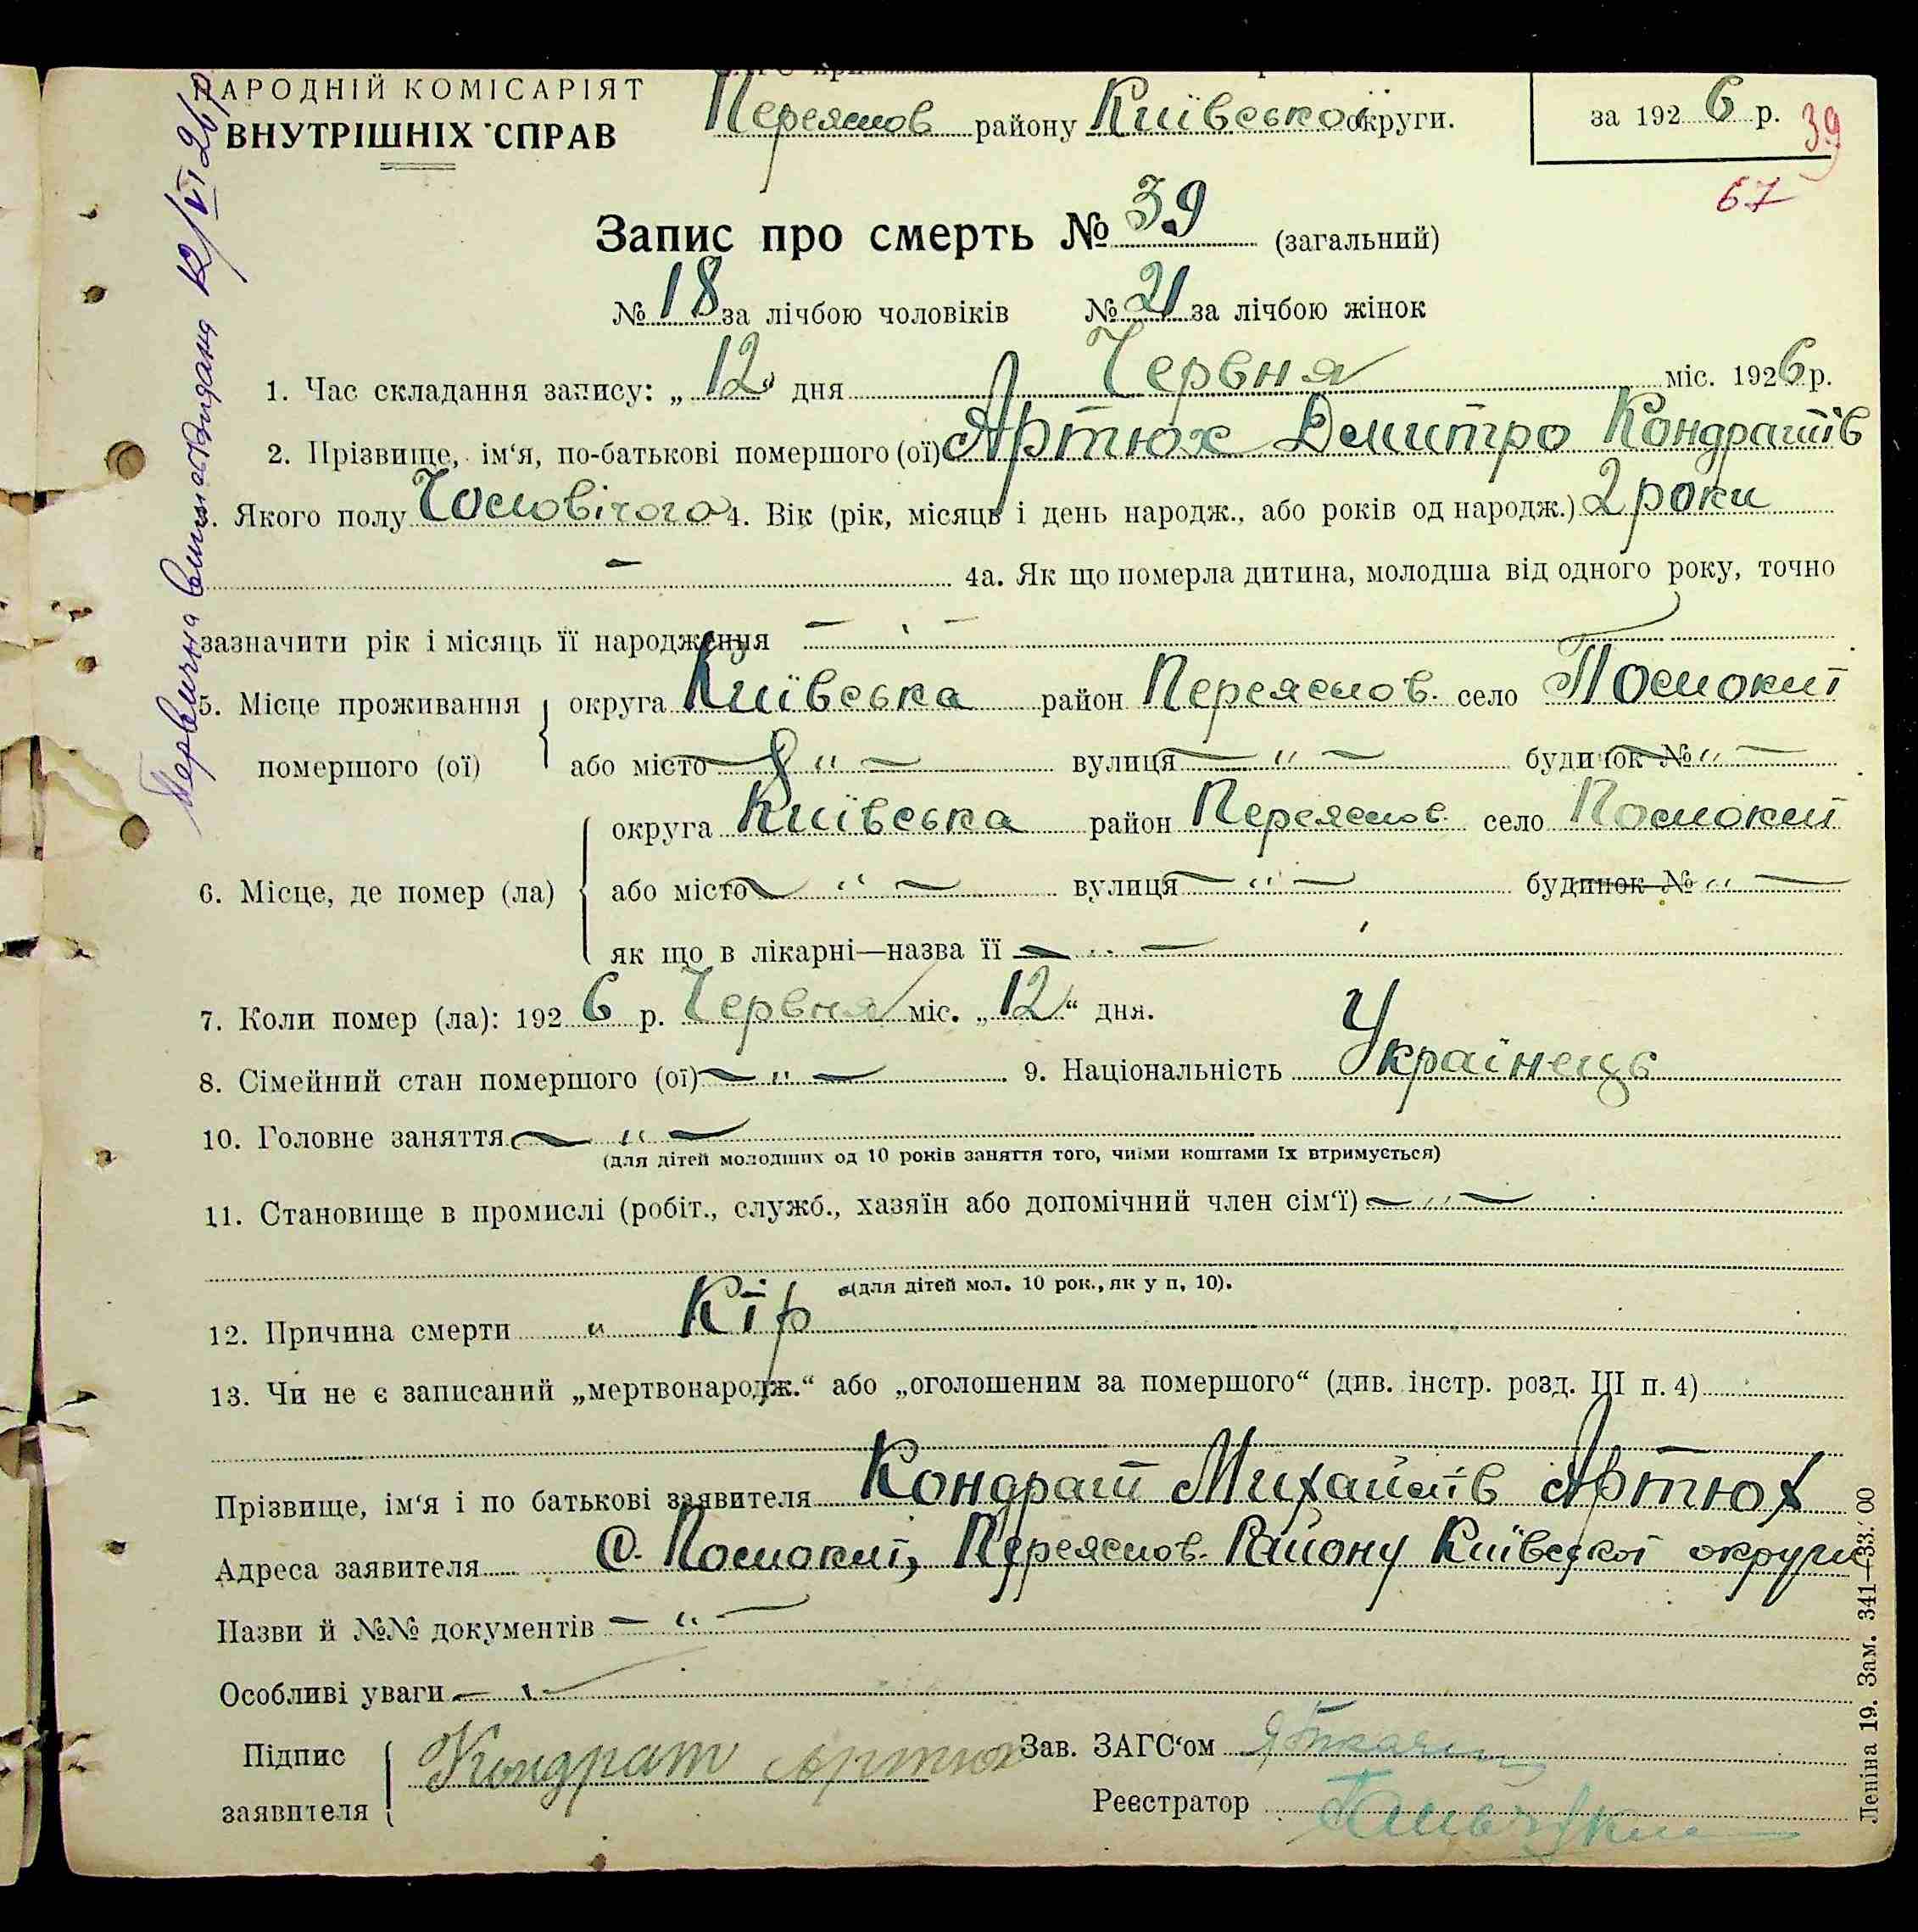 НАРОДНІЙ КОМІСАРІЯТ
ВНУТРІШНІХ СПРАВ
Переяслов району Київської округи.
за 1926 р.
39
67
Запис про смерть № 39 (загальний)
№ 18 за лічбою чоловіків № 21 за лічбою жінок
1. Час складання запису: „12" дня Червня міс. 1926 р.
2. Прізвище, ім'я, по-батькові помершого (ої) Артюх Демитро Кондратів
3. Якого полу Чоловічого 4. Вік (рік, місяць і день народж., або років од народж.) 2 роки
– 4а. Як що померла дитина, молодша від одного року, точно
зазначити рік і місяць її народження –
5. Місце проживання помершого (ої) округа Київська район Переяслов. село Полокиї
або місто – " – вулиця – " – будинок № " –
6. Місце, де помер (ла) округа Київська район Переяслов. село Полокиї
або місто – " – вулиця – " – будинок № " –
як що в лікарні—назва її – " –
7. Коли помер (ла): 1926 р. Червня міс. „12" дня.
8. Сімейний стан помершого (ої) – " – 9. Національність Українець
10. Головне заняття – " –
(для дітей молодших од 10 років заняття того, чиїми коштами їх втримується)
11. Становище в промислі (робіт., служб., хазяїн або допомічний член сім'ї) – " –
(для дітей мол. 10 рок., як у п. 10).
12. Причина смерти " Кір
13. Чи не є записаний „мертвонародж." або „оголошеним за помершого" (див. інстр. розд. III п. 4)
Прізвище, ім'я і по батькові заявителя Кондрат Михайлів Артюх
Адреса заявителя С. Полокиї, Переяслов. Району Київської округи
Назви й №№ документів – " –
Особливі уваги –
Підпис заявителя Кондрат Артюх
Зав. ЗАГС'ом
Реєстратор
Первична виписка видана 12/VI 26 р
Леніна 19. Зам. 341—33.000